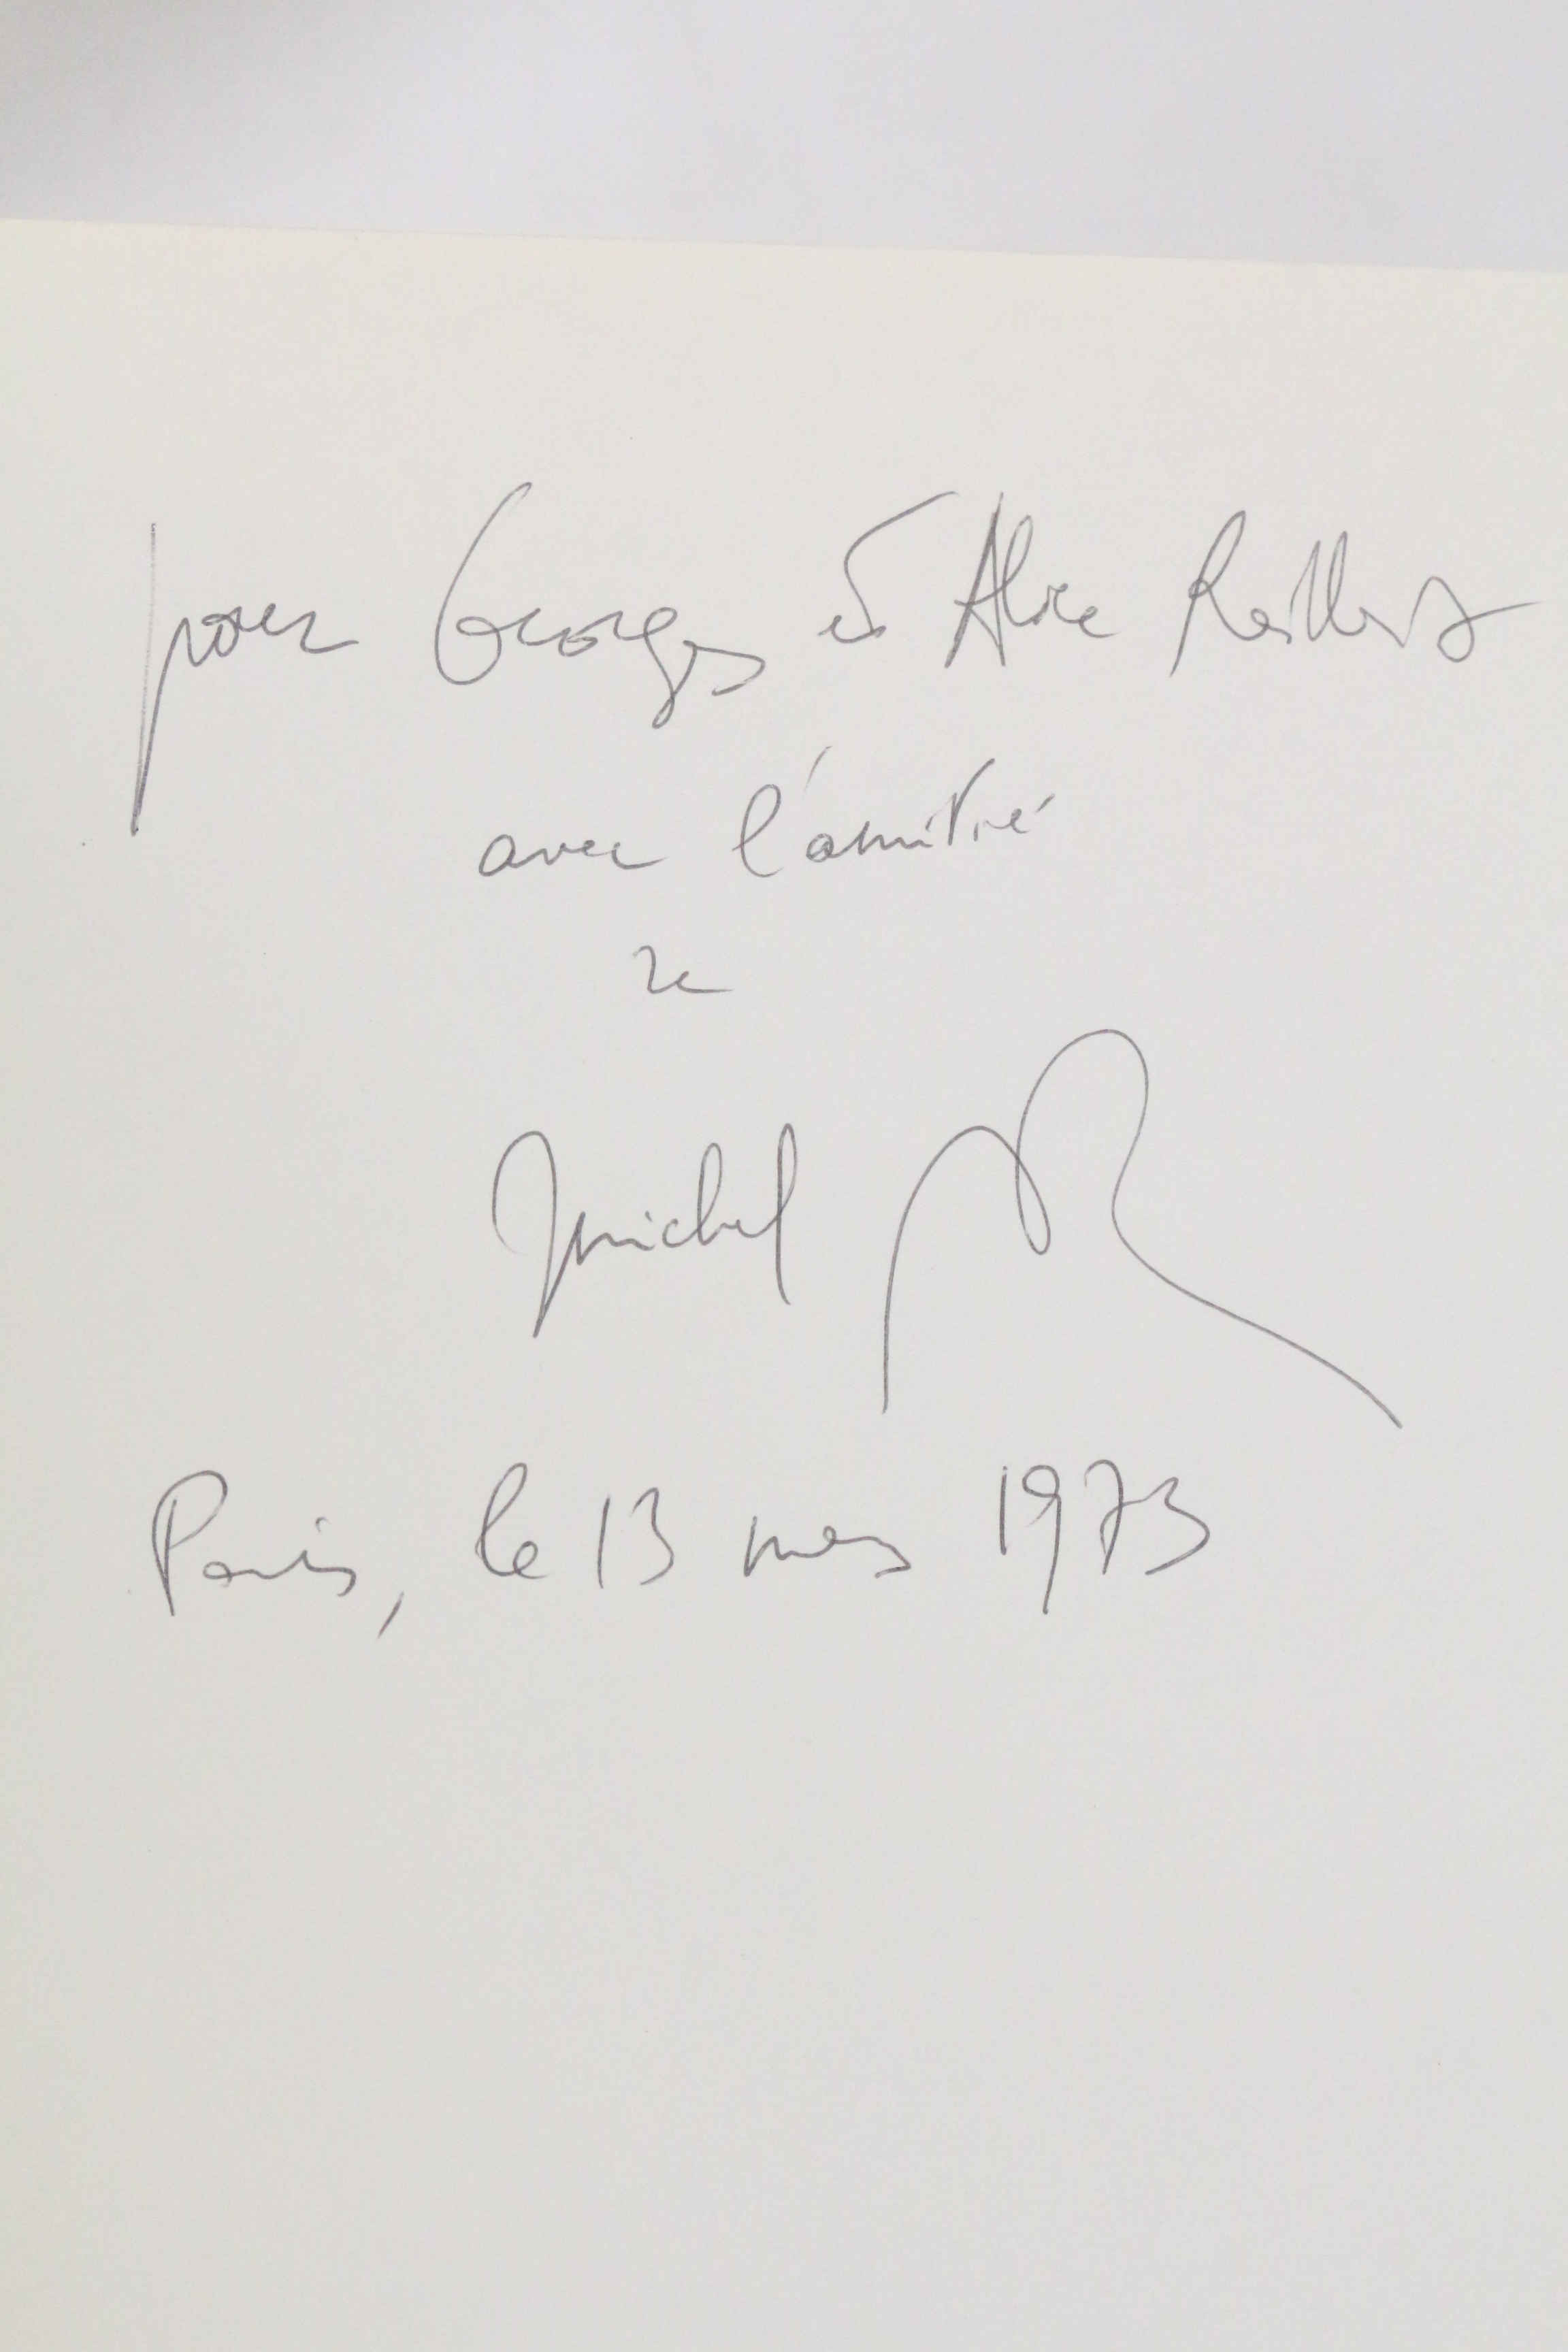 pour Georges et Alice Raillard
avec l'amitié
de
Michel
Paris, le 13 mars 1973